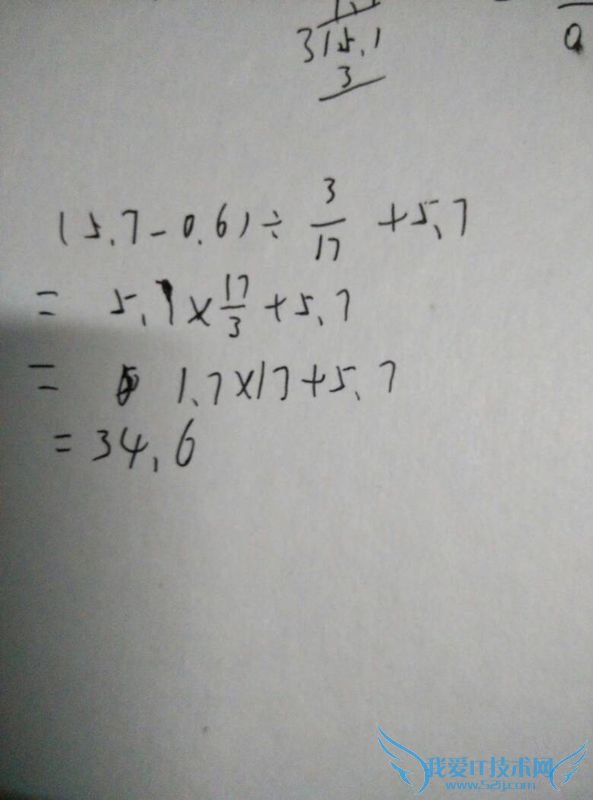 3 15.1
3
(5.7-0.6)÷3/17+5.7
=5.1×17/3+5.7
=1.7×17+5.7
=34.6
我爱IT技术网
www.52ij.com